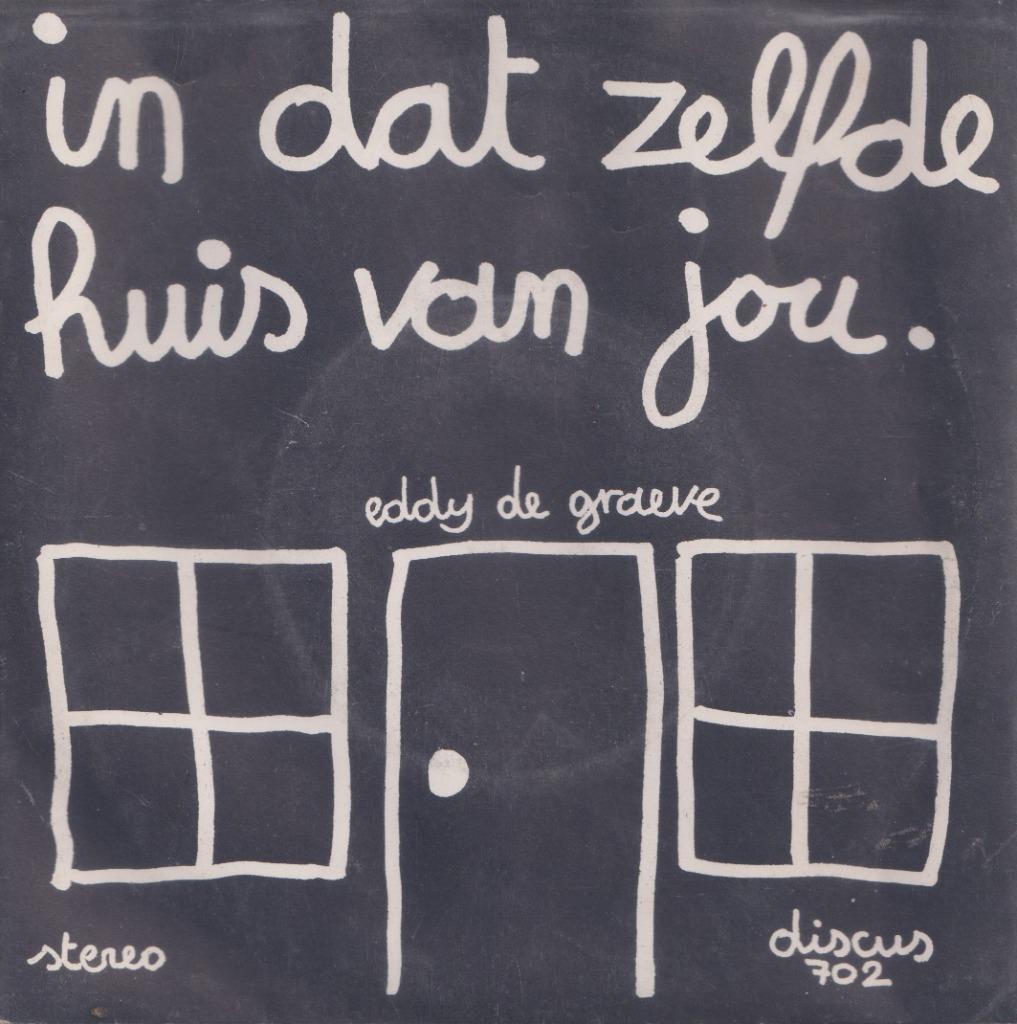 in dat zelfde
huis van jou.
eddy de graeve
stereo
discus
702